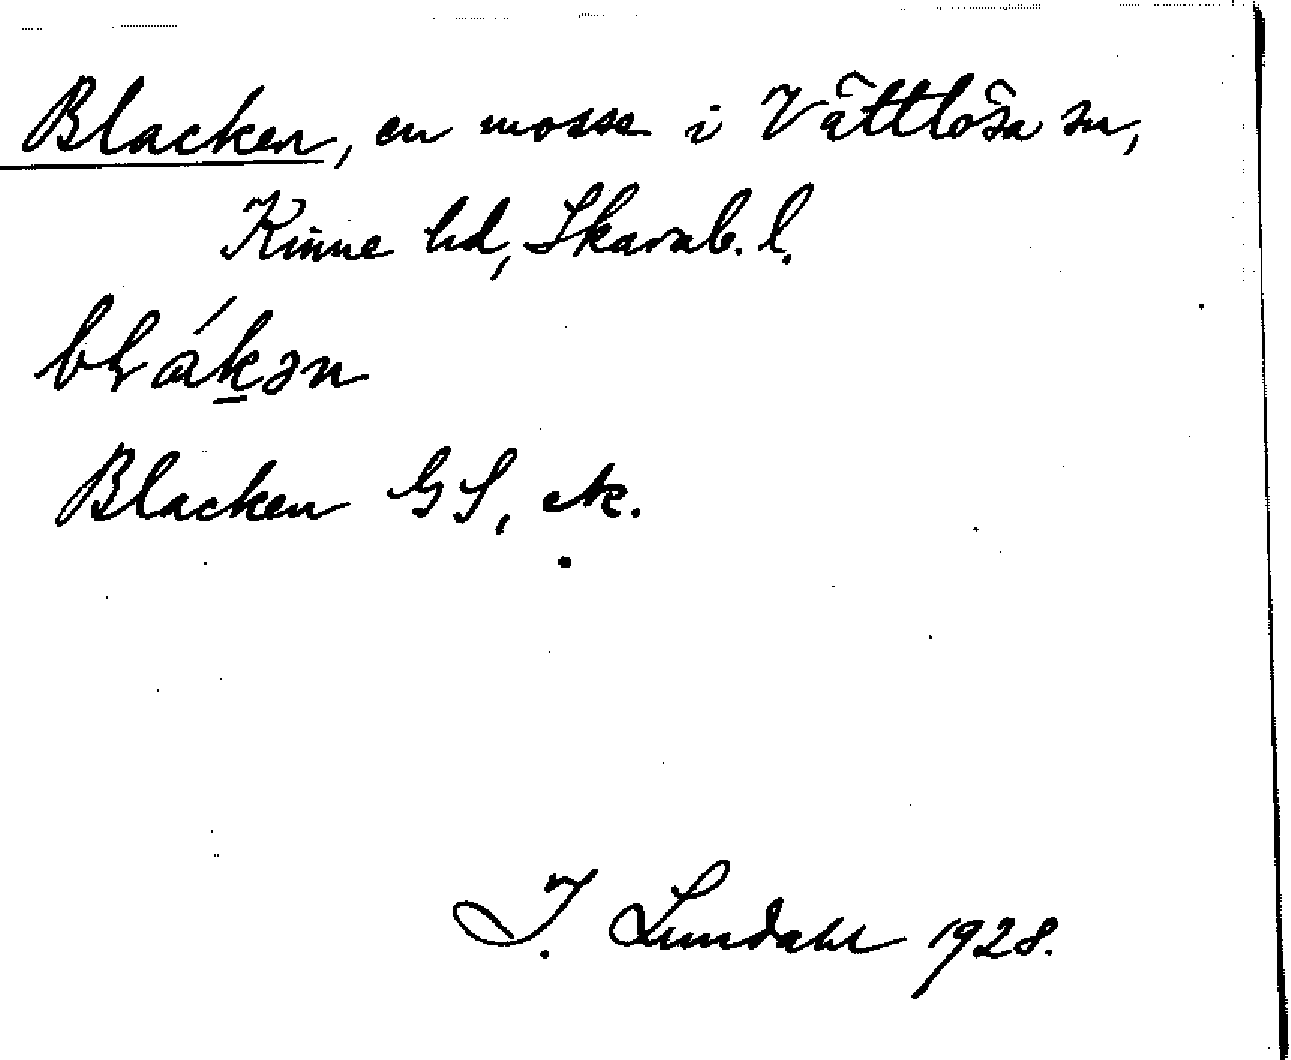 Blacken, en mosse i Vättlösa sn,
Kinne hd, Skarab. l.
Blacken GS, ek.
I. Lundahl 1928.